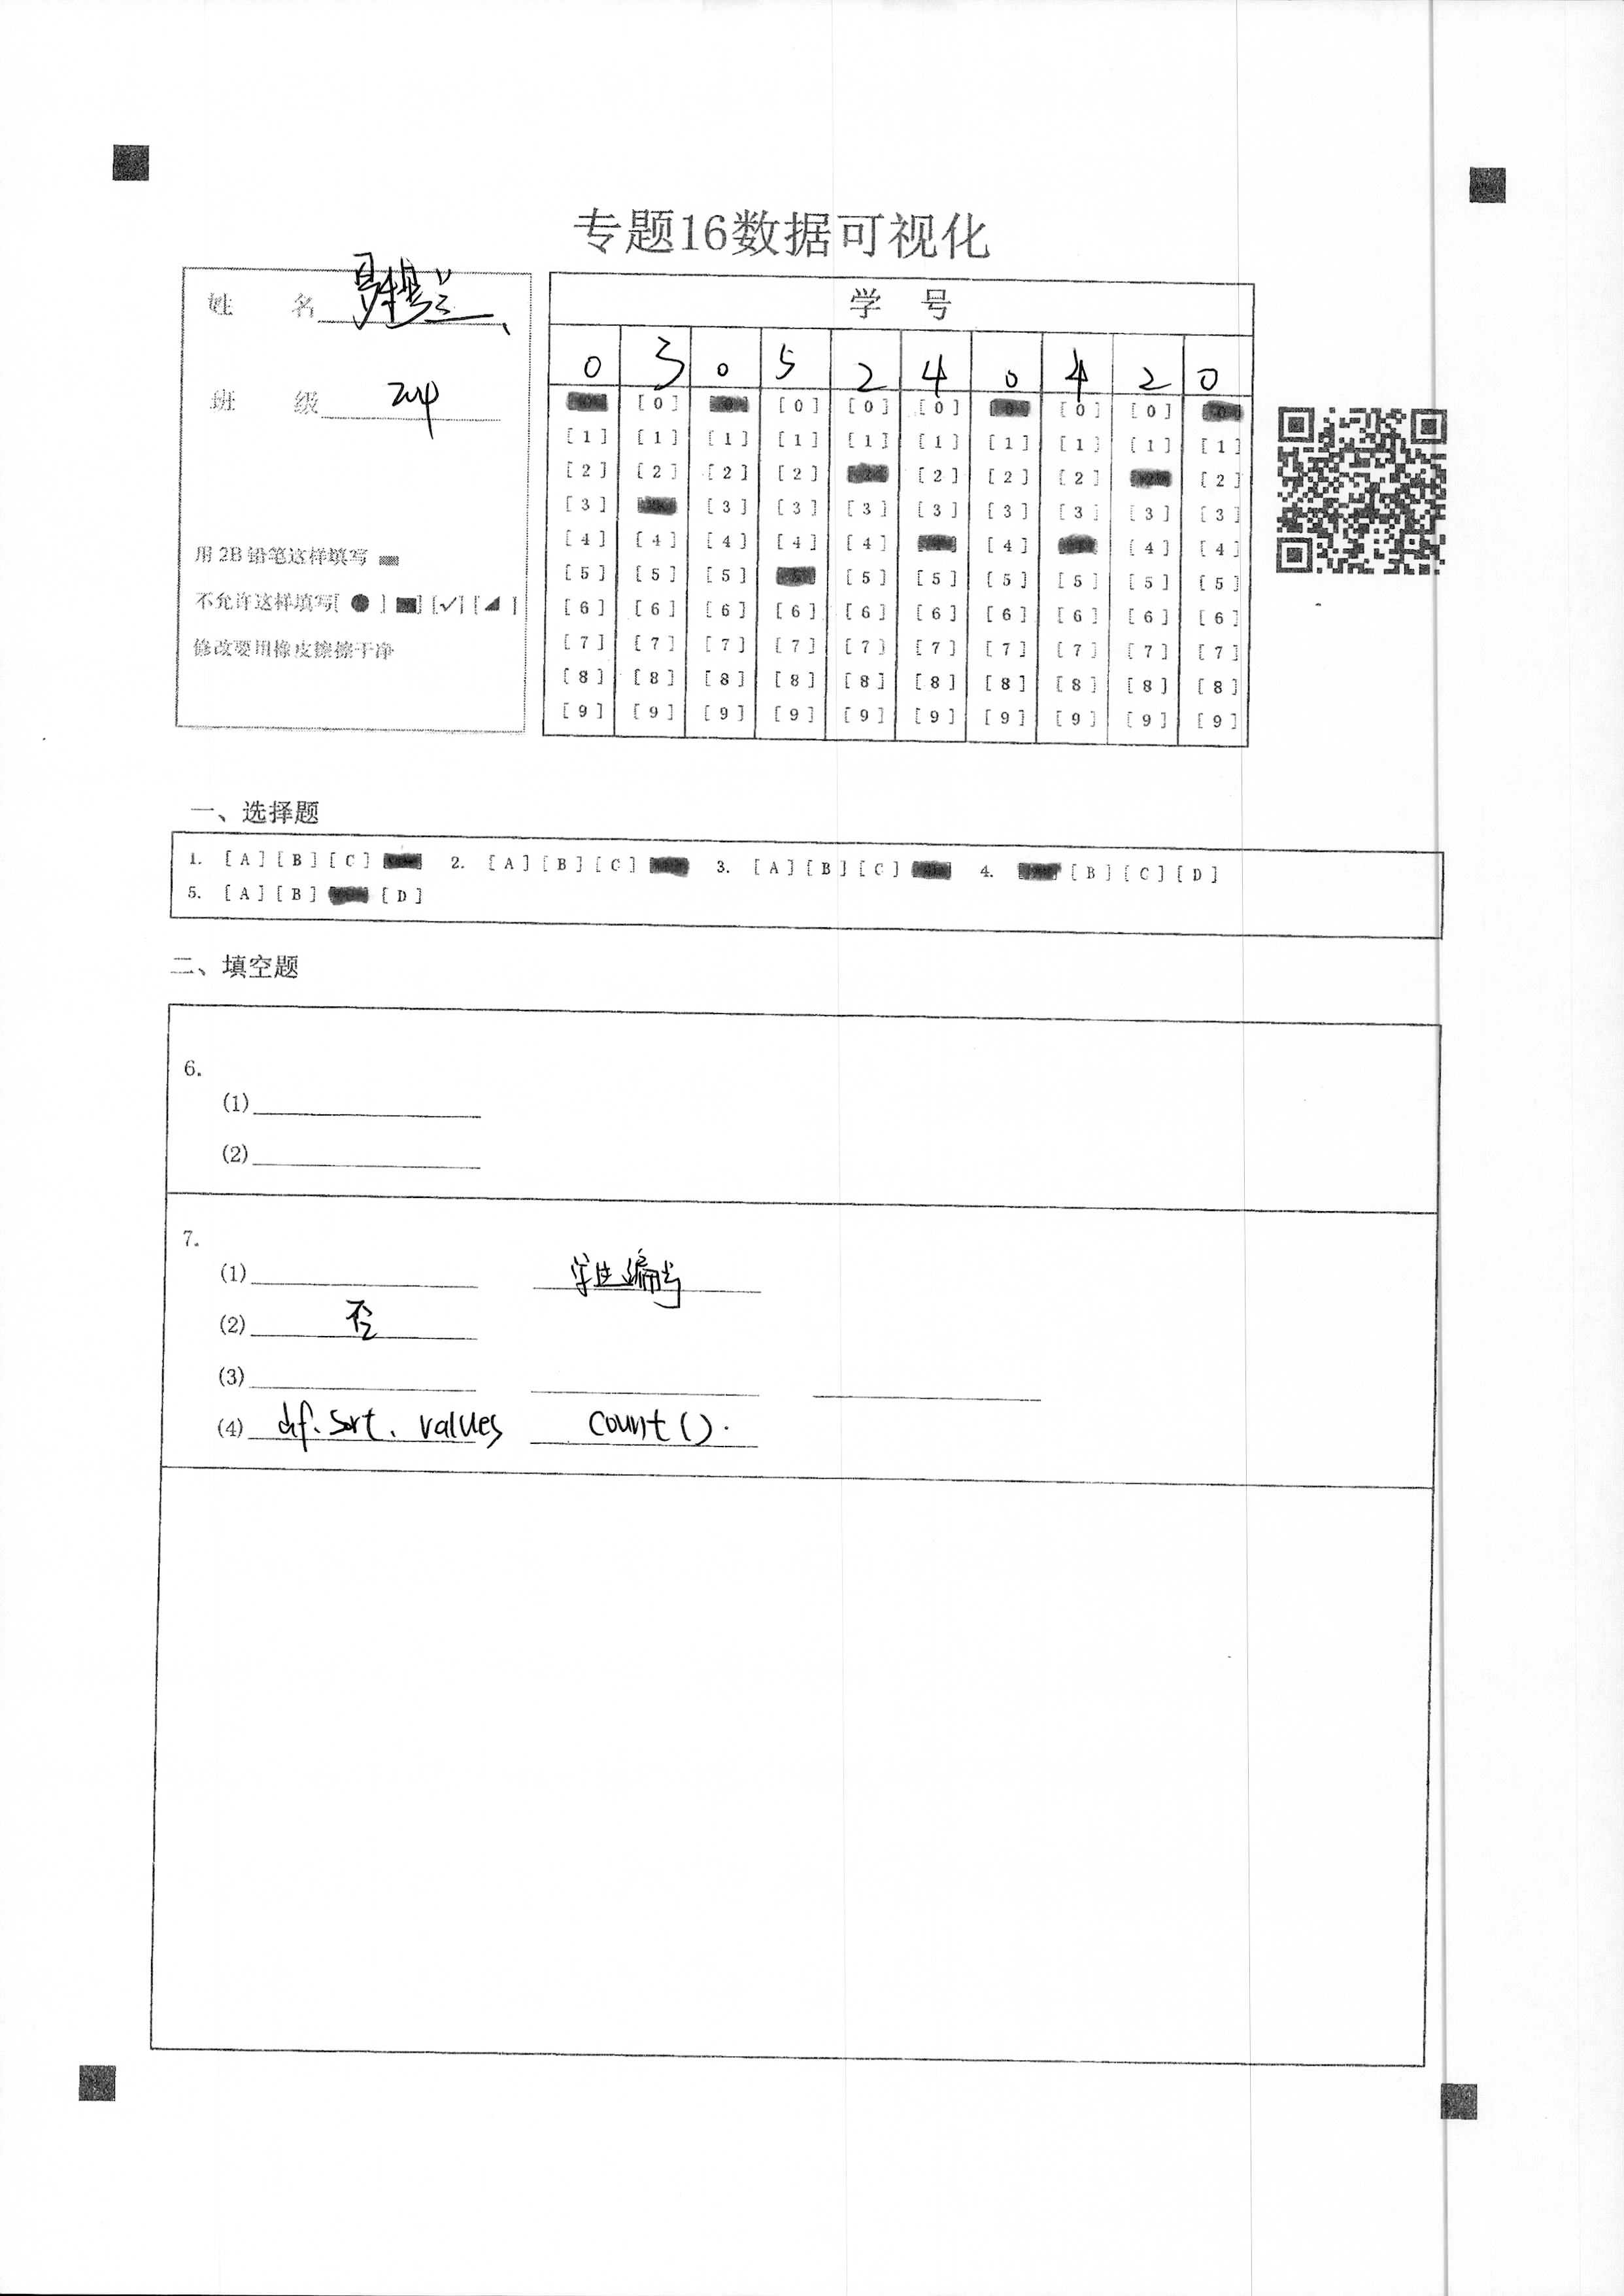 专题16数据可视化
姓 名
班 级 204
用 2B 铅笔这样填写
不允许这样填写[ ● ] ■] [✓] [◢ ]
修改要用橡皮擦擦干净
学 号
0 3 0 5 2 4 0 4 2 0
[0] [0] [0] [0] [0] [0]
[1] [1] [1] [1] [1] [1] [1] [1] [1] [1]
[2] [2] [2] [2] [2] [2] [2] [2]
[3] [3] [3] [3] [3] [3] [3] [3] [3]
[4] [4] [4] [4] [4] [4] [4] [4]
[5] [5] [5] [5] [5] [5] [5] [5] [5]
[6] [6] [6] [6] [6] [6] [6] [6] [6] [6]
[7] [7] [7] [7] [7] [7] [7] [7] [7] [7]
[8] [8] [8] [8] [8] [8] [8] [8] [8] [8]
[9] [9] [9] [9] [9] [9] [9] [9] [9] [9]
一、选择题
1. [A] [B] [C] 2. [A] [B] [C] 3. [A] [B] [C] 4. [B] [C] [D]
5. [A] [B] [D]
二、填空题
6.
(1)
(2)
7.
(1) 学生编号
(2) 否
(3)
(4) df.sort.values count().